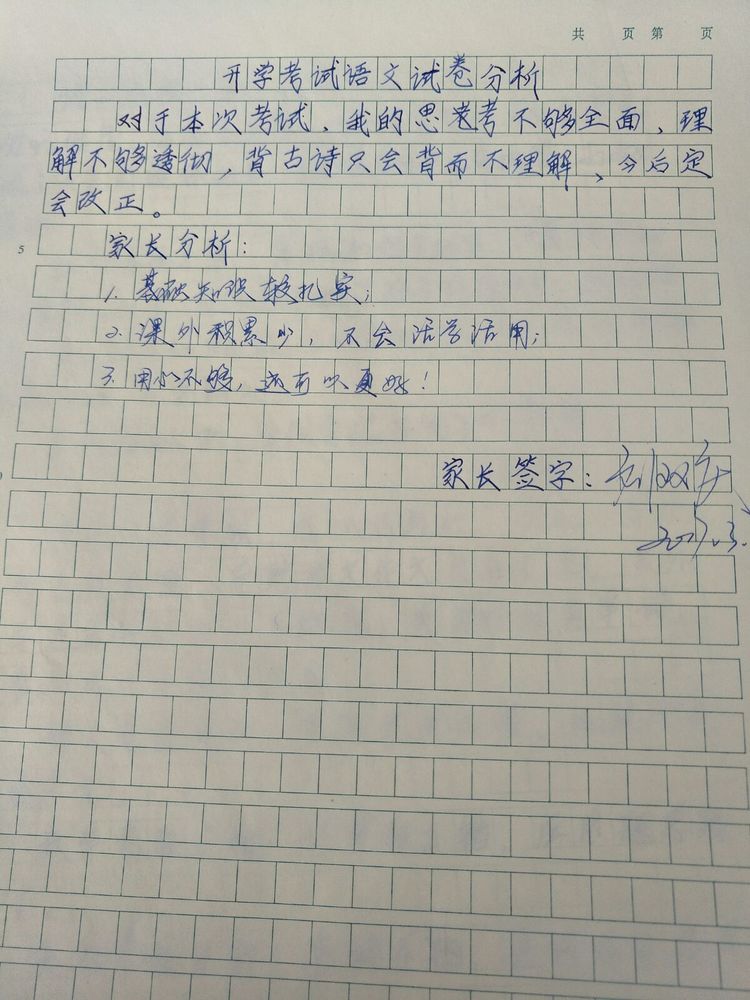 共 页 第 页
开学考试语文试卷分析
对于本次考试、我的思考不够全面、理
解不够透彻,背古诗只会背而不理解、今后定
会改正。
5
家长分析:
1. 基础知识较扎实;
2. 课外积累少,不会活学活用;
3. 用心不够,还可以更好!
家长签字: